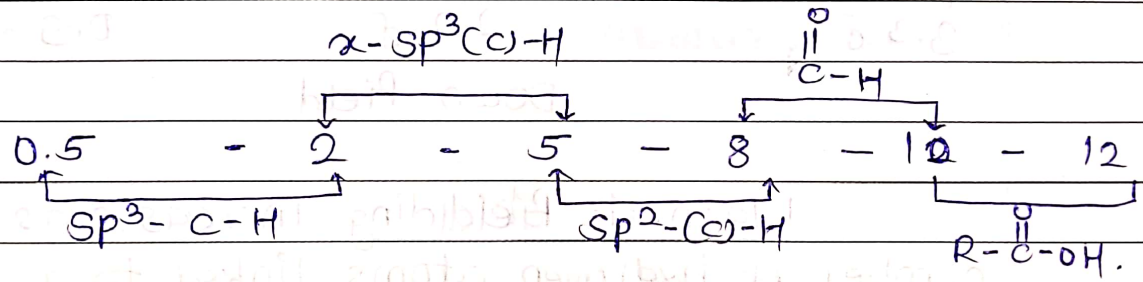 x-Sp³(C)-H
O
||
C-H
0.5 - 2 - 5 - 8 - 10 - 12
Sp³- C-H
Sp²-(C)-H
O
||
R-C-OH.